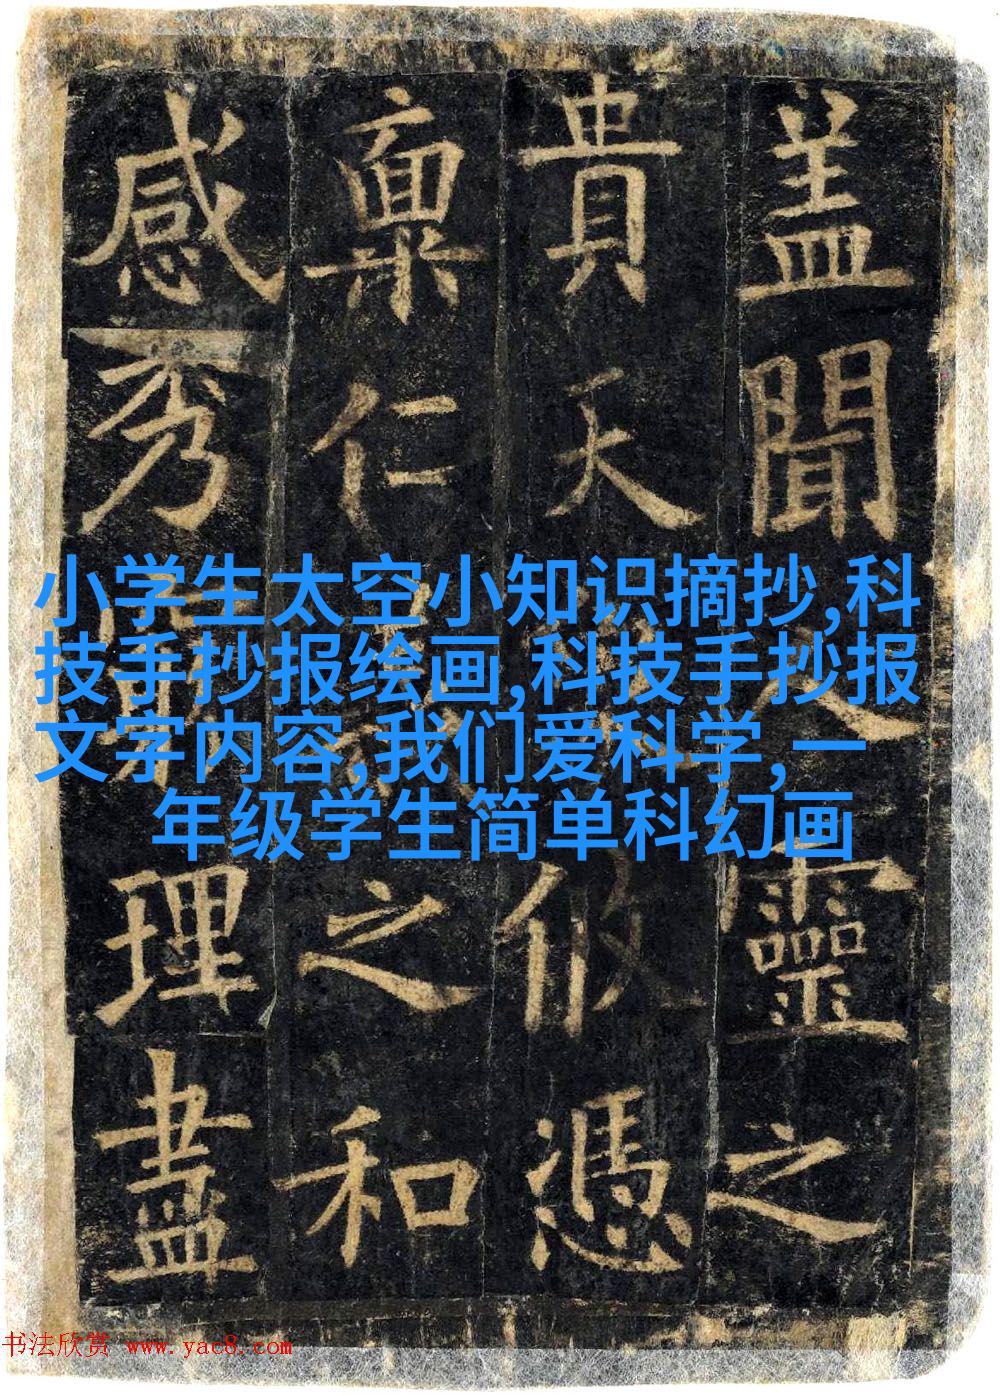 盖聞人靈之
貴天攸憑
稟仁之和
感秀理盡
小学生太空小知识摘抄,科
技手抄报绘画,科技手抄报
文字内容,我们爱科学,一
年级学生简单科幻画
书法欣赏 www.yac8.com